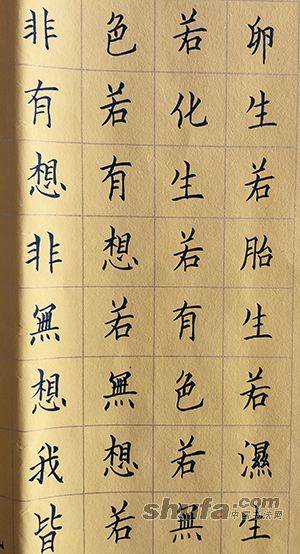 卵生若胎生若濕生
若化生若有色若無
色若有想若無想若
非有想非無想我皆
shufa.com